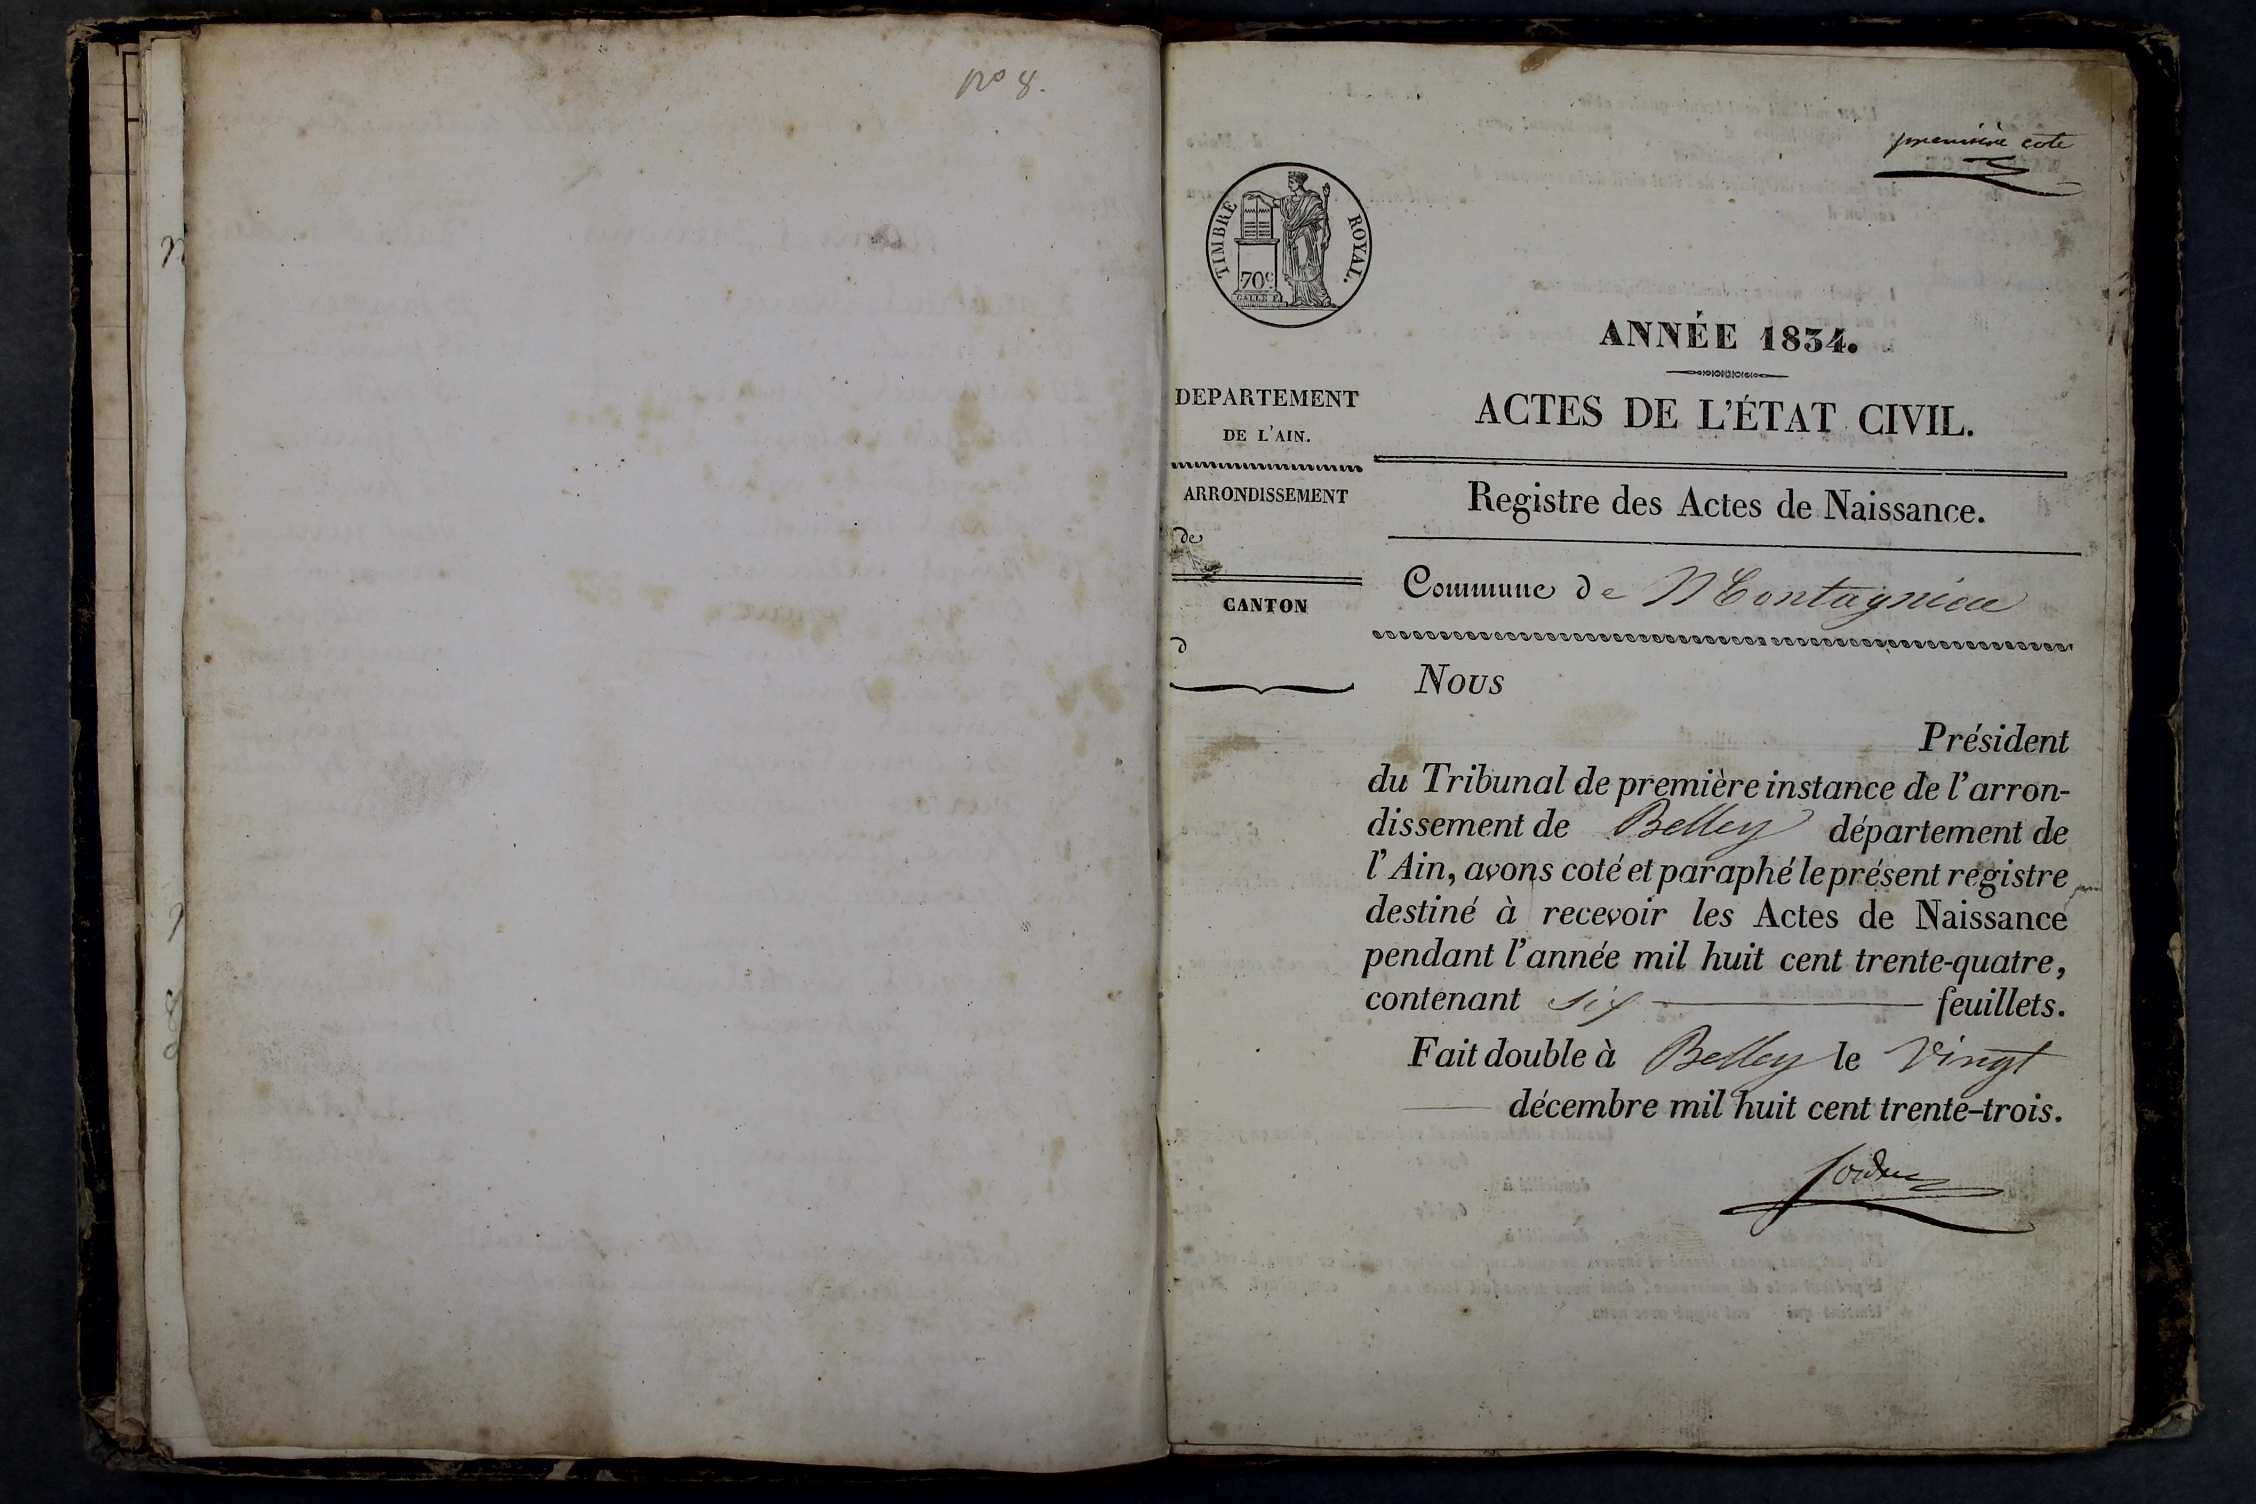 No 8.
première cote
TIMBRE ROYAL.
70c
ANNÉE 1834.
DEPARTEMENT
DE L'AIN.
ARRONDISSEMENT
de
CANTON
d
ACTES DE L'ÉTAT CIVIL.
Registre des Actes de Naissance.
Commune de Montagnieu
Nous
Président
du Tribunal de première instance de l'arron-
dissement de Belley département de
l'Ain, avons coté et paraphé le présent registre
destiné à recevoir les Actes de Naissance
pendant l'année mil huit cent trente-quatre,
contenant six feuillets.
Fait double à Belley le Vingt
décembre mil huit cent trente-trois.